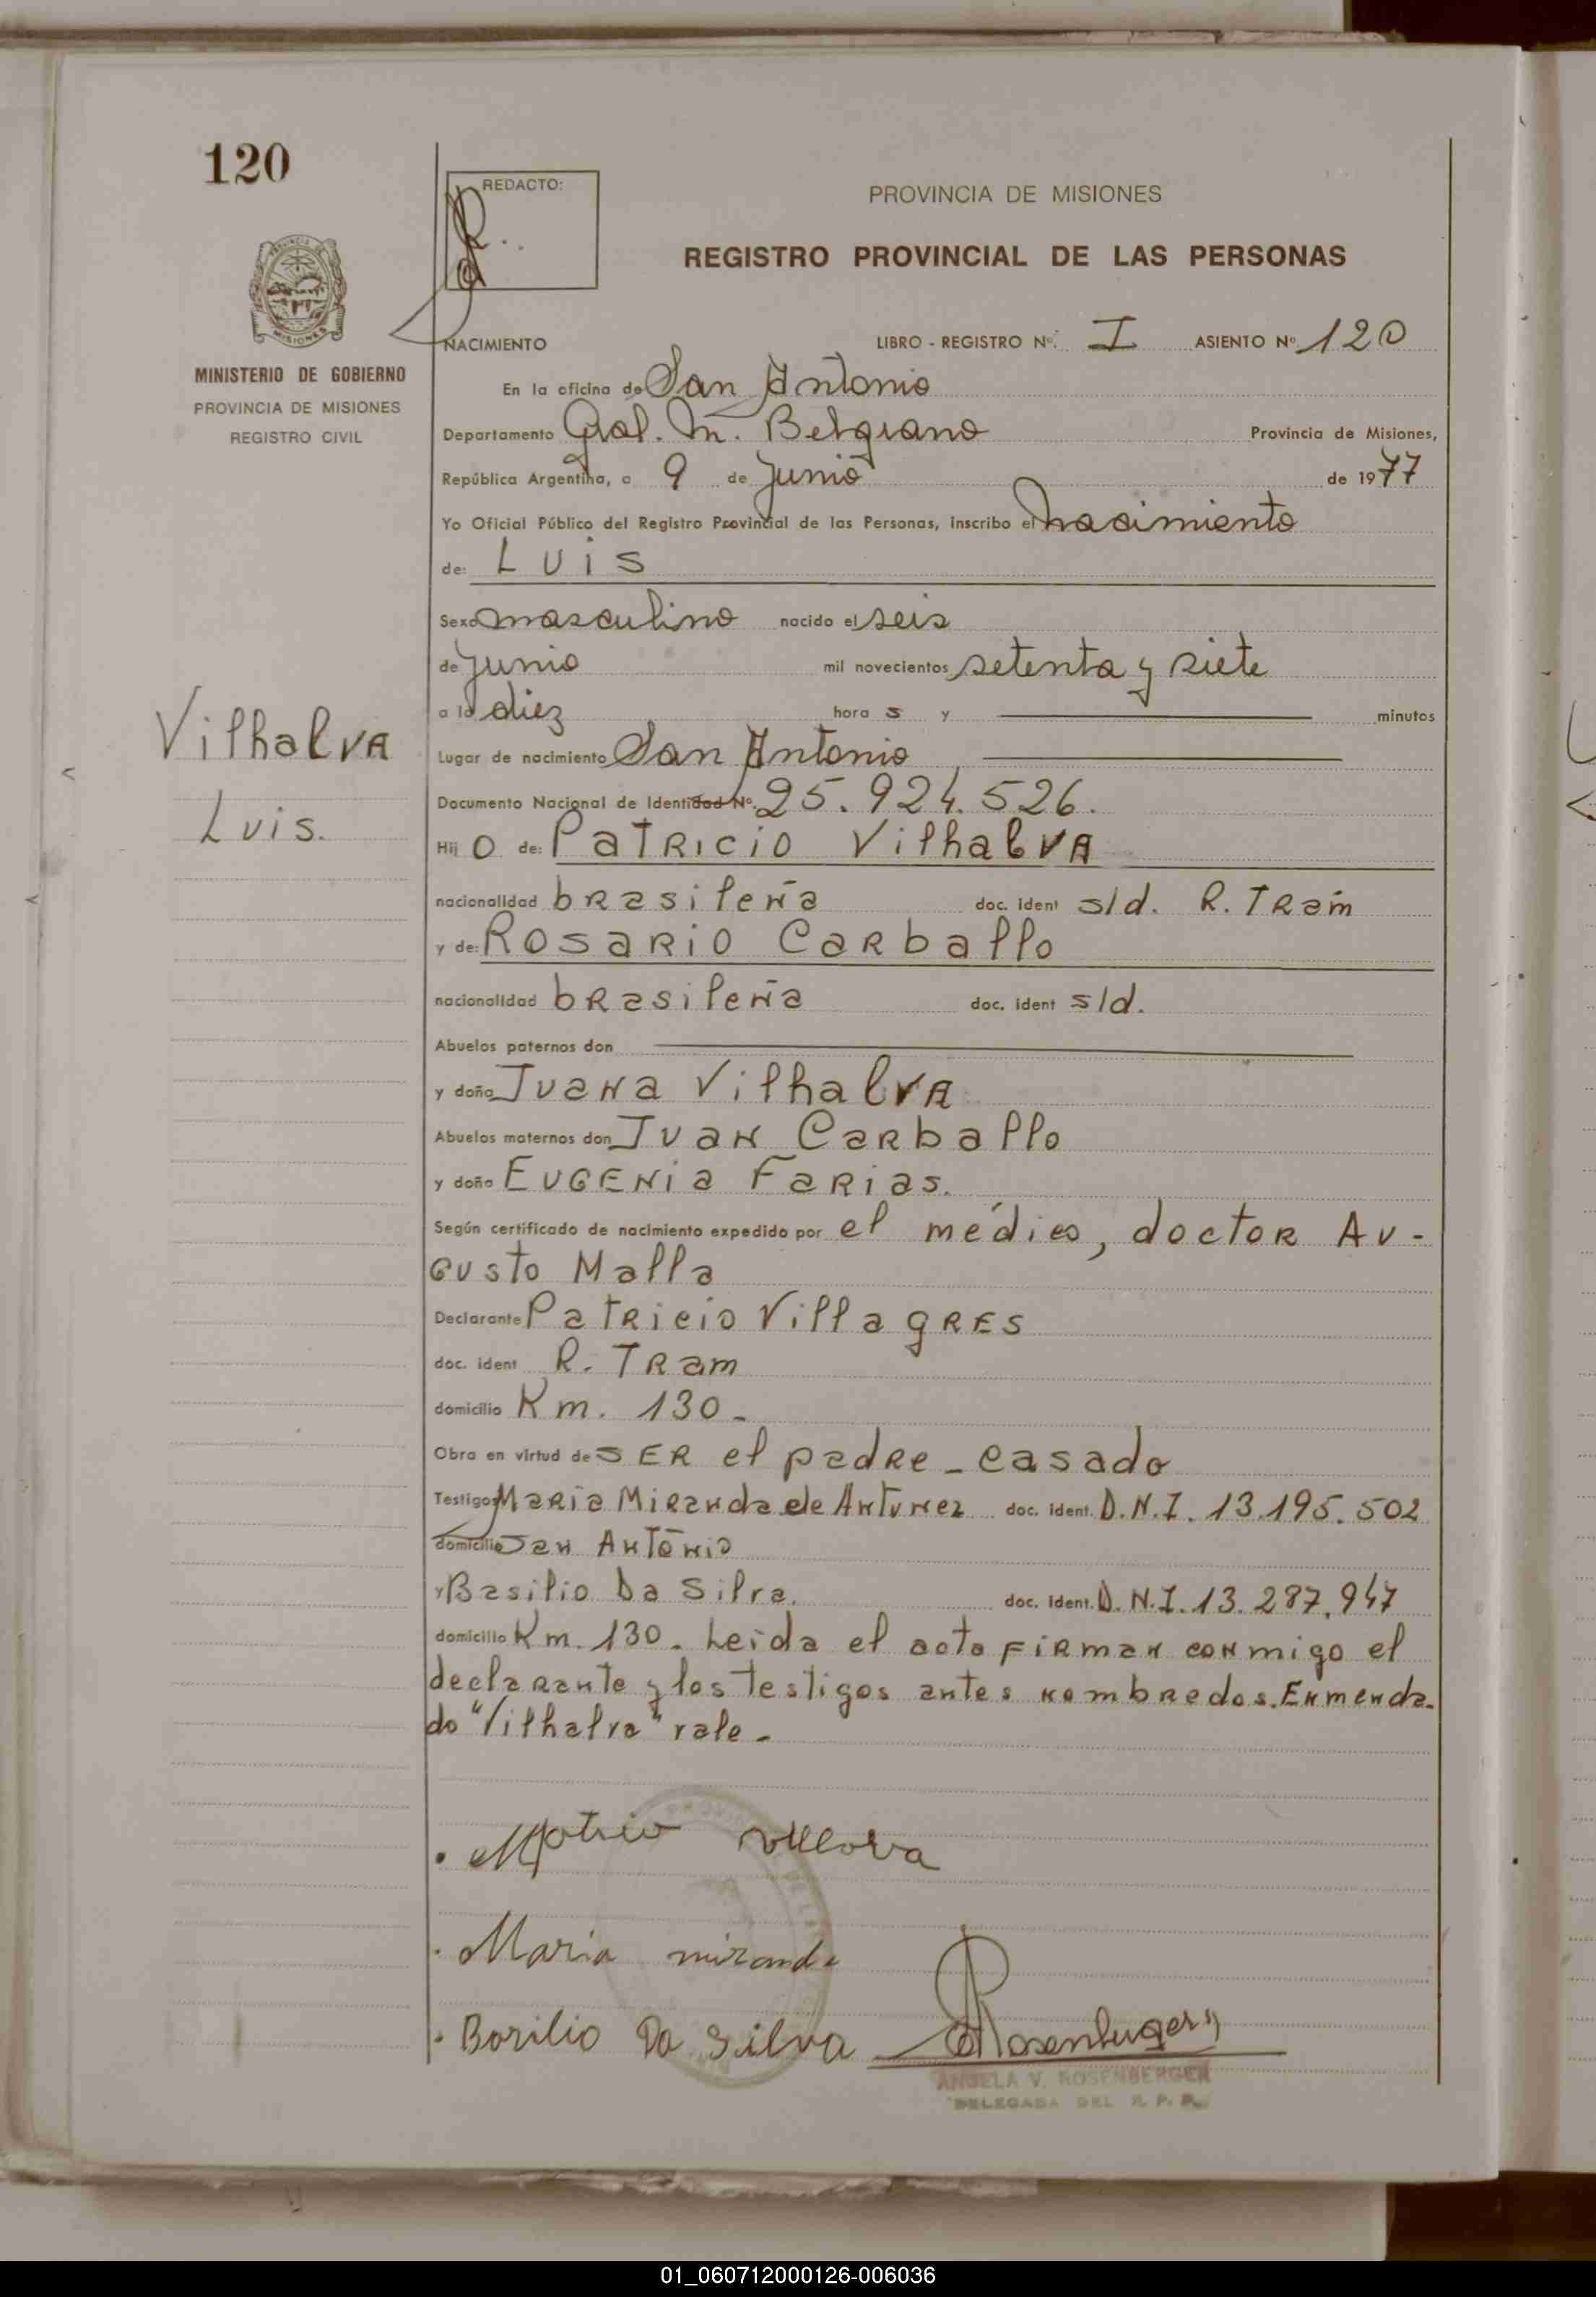 120
REDACTO:
PROVINCIA DE MISIONES
REGISTRO PROVINCIAL DE LAS PERSONAS
MISIONES
MINISTERIO DE GOBIERNO
PROVINCIA DE MISIONES
REGISTRO CIVIL
NACIMIENTO LIBRO - REGISTRO Nº: I ASIENTO Nº 120
En la oficina de San Antonio
Departamento Gral. M. Belgrano Provincia de Misiones,
República Argentina, a 9 de Junio de 1977
Yo Oficial Público del Registro Provincial de las Personas, inscribo el nacimiento
de: Luis
Sexo masculino nacido el seis
de Junio mil novecientos setenta y siete
a la diez hora s y minutos
Vilhalva
Luis.
Lugar de nacimiento San Antonio
Documento Nacional de Identidad Nº. 25.924.526.
Hij o de: Patricio Vilhalva
nacionalidad brasileña doc. ident s/d. R. Tram
y de: Rosario Carballo
nacionalidad brasileña doc. ident s/d.
Abuelos paternos don
y doña Juana Vilhalva
Abuelos maternos don Juan Carballo
y doña Eugenia Farias.
Según certificado de nacimiento expedido por el médico, doctor Au-
gusto Malla
Declarante Patricio Villagres
doc. ident R. Tram
domicilio Km. 130-
Obra en virtud de ser el padre - casado
Testigos Maria Miranda de Antunez doc. ident. D.N.I. 13.195.502
domicilio San Antonio
y Basilio Da Silva. doc. ident. D.N.I. 13.287.947
domicilio Km. 130. Leida el acta firman conmigo el
declarante y los testigos antes nombrados. Enmenda-
do "Vilhalva" vale-
Maria miranda
Basilio Da Silva Rosenberger
ANGELA V. ROSENBERGER
DELEGADA DEL R. P. P.
01_060712000126-006036